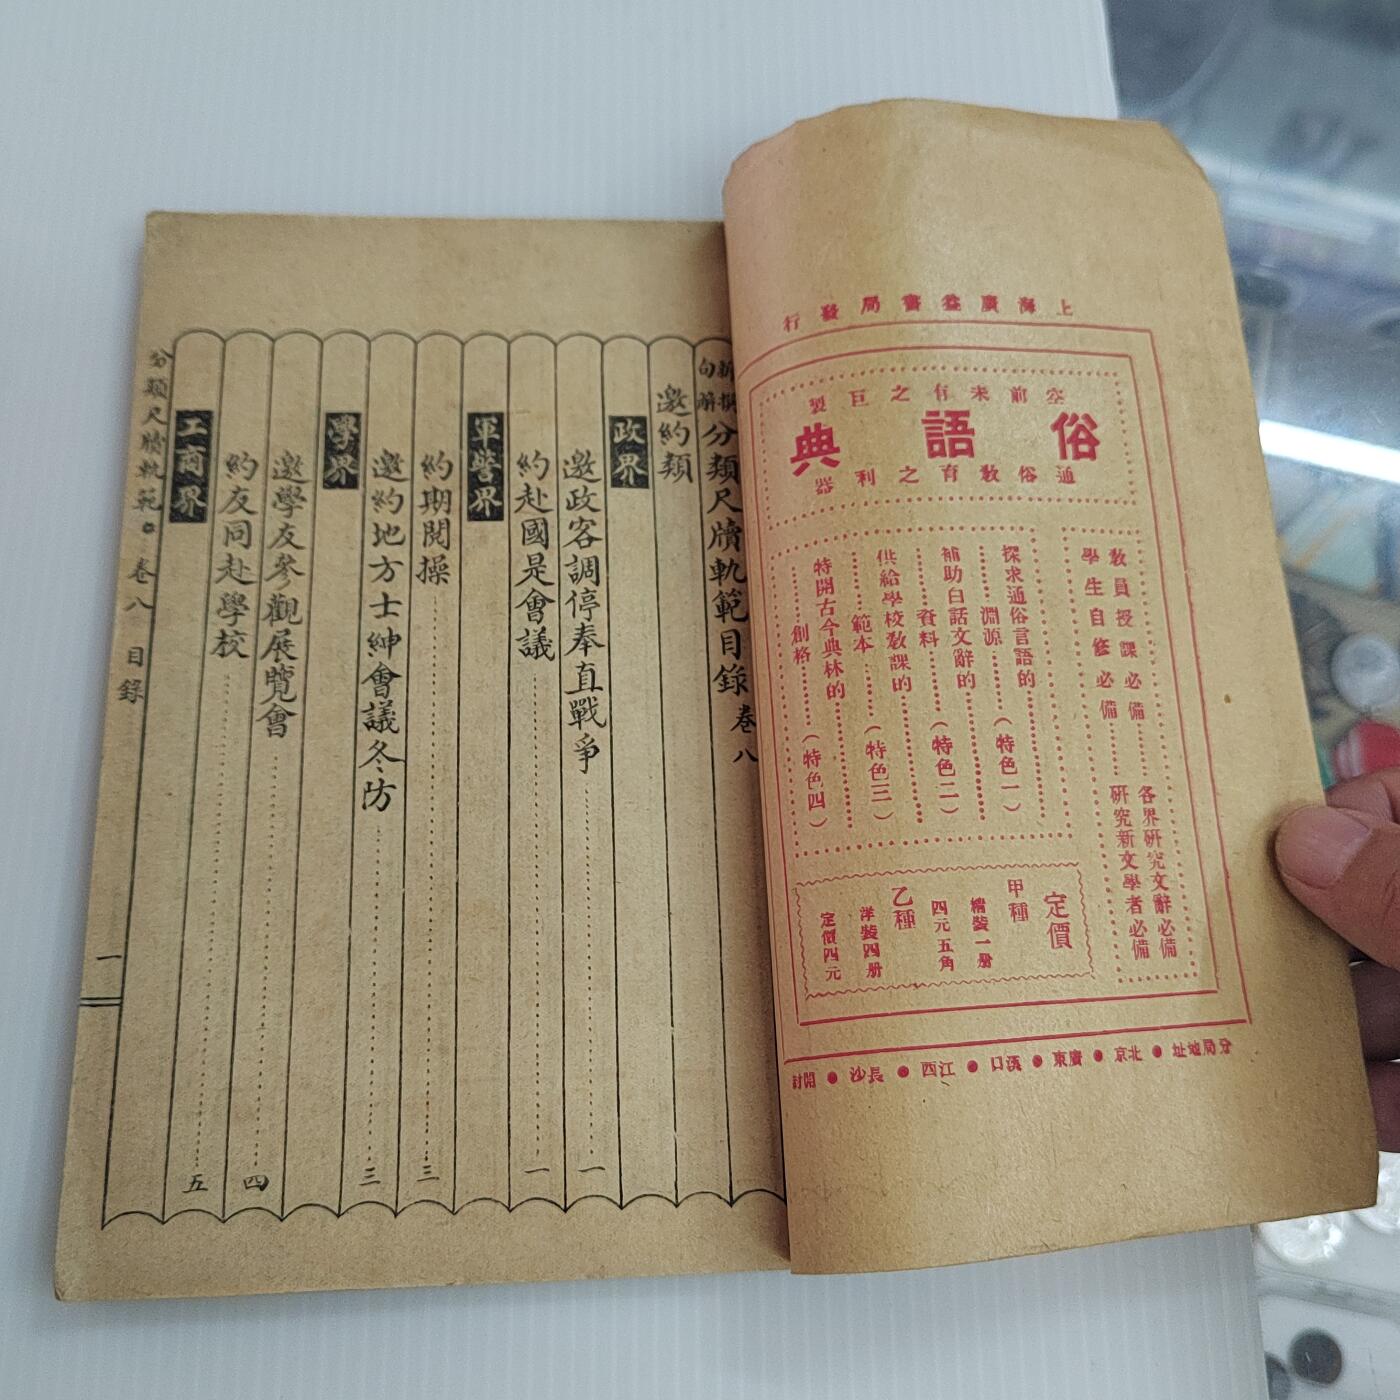 上海廣益書局發行
空前未有之巨製
俗語典
通俗教育之利器
教員授課必備……各界研究文辭必備
學生自修必備……研究新文學者必備
探求通俗言語的
淵源……(特色一)
補助白話文辭的
資料……(特色二)
供給學校教課的
範本……(特色三)
特開古今典林的
創格……(特色四)
定價
甲種
精裝一册
四元五角
乙種
洋裝四册
定價四元
分局地址●北京●廣東●漢口●江西●長沙●開封
分類尺牘軌範目錄 卷八
邀約類
政界
邀政客調停奉直戰爭……一
約赴國是會議……一
軍警界
約期閱操……三
邀約地方士紳會議冬防……三
學界
邀學友參觀展覽會……四
約友同赴學校……五
工商界
分類尺牘軌範 卷八 目錄 一